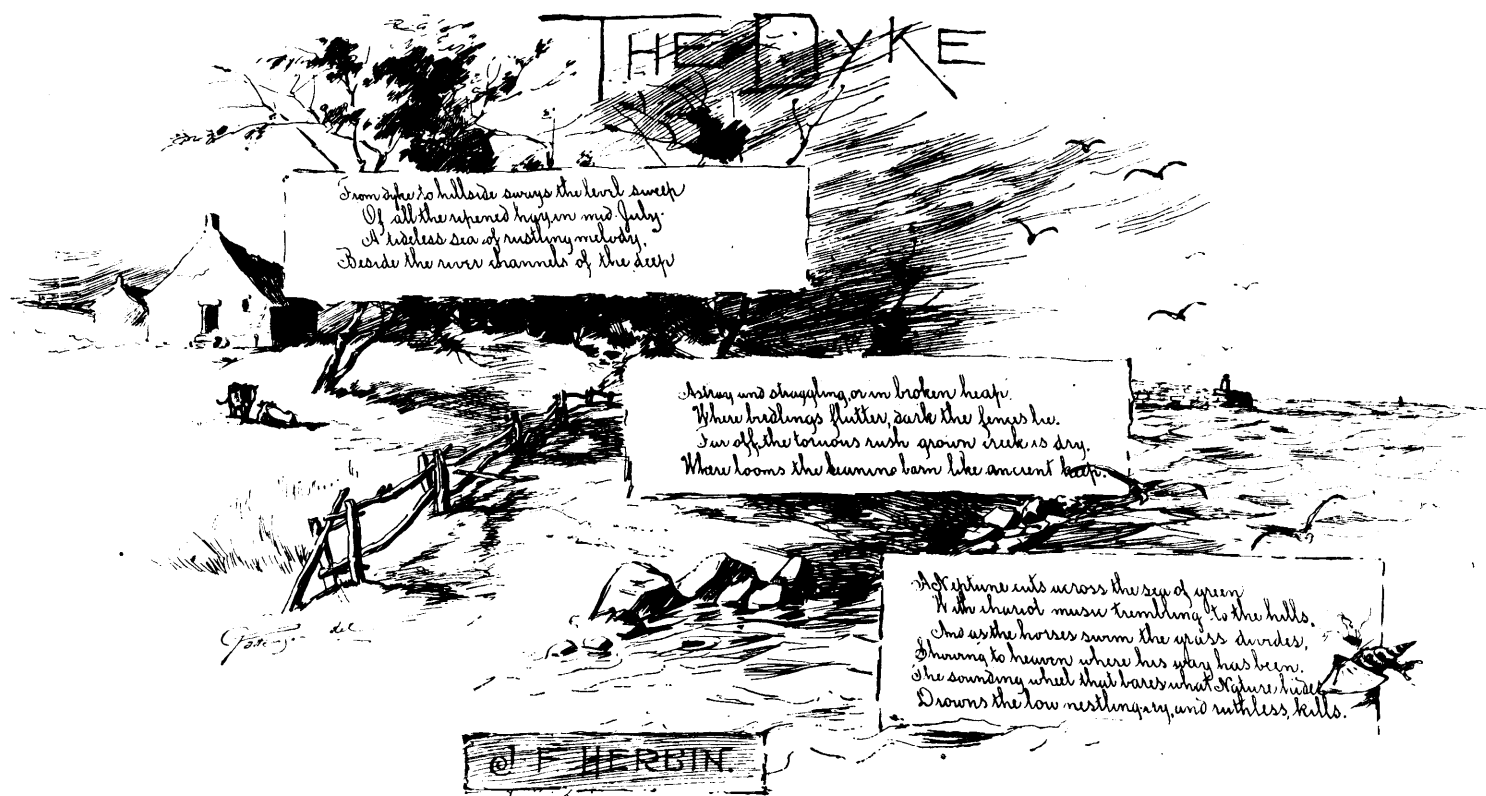 THE DYKE
From dyke to hillside sways the level sweep
Of all the ripened hay in mid July.
A tideless sea of rustling melody,
Beside the river channels of the deep
Astray and straggling, or in broken heap.
Where birdlings flutter, dark the fences lie.
Far off, the tortuous rush grown creek is dry.
Where looms the leaning barn like ancient keep.
A Neptune cuts across the sea of green
With chariot music trembling to the hills.
And as the horses swim the grass divides,
Showing to heaven where his way has been.
The sounding wheel that bares what Nature hides
Drowns the low nestling-cry, and ruthless, kills.
del
J F HERBIN.